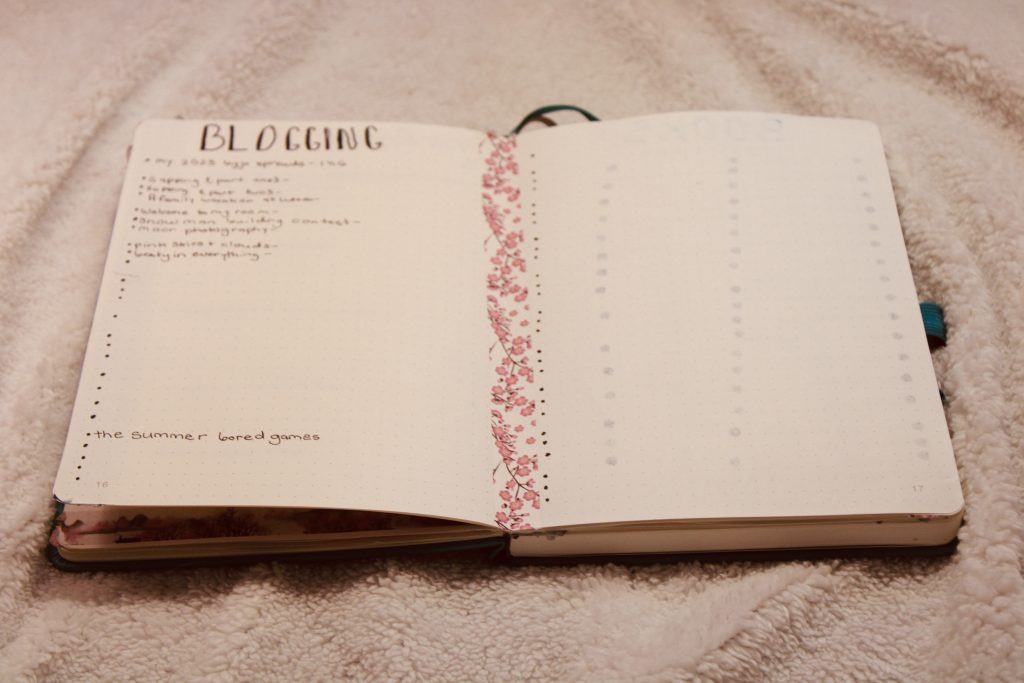 BLOGGING
• my 2023 bujo spreads -
• sapping & part one! -
• sapping & part two! -
A family vacation
• welcome to my room -
• snowman building contest -
• macr photography
• pink skies + clouds -
• beaty in everything -
• the summer bored games
16
17